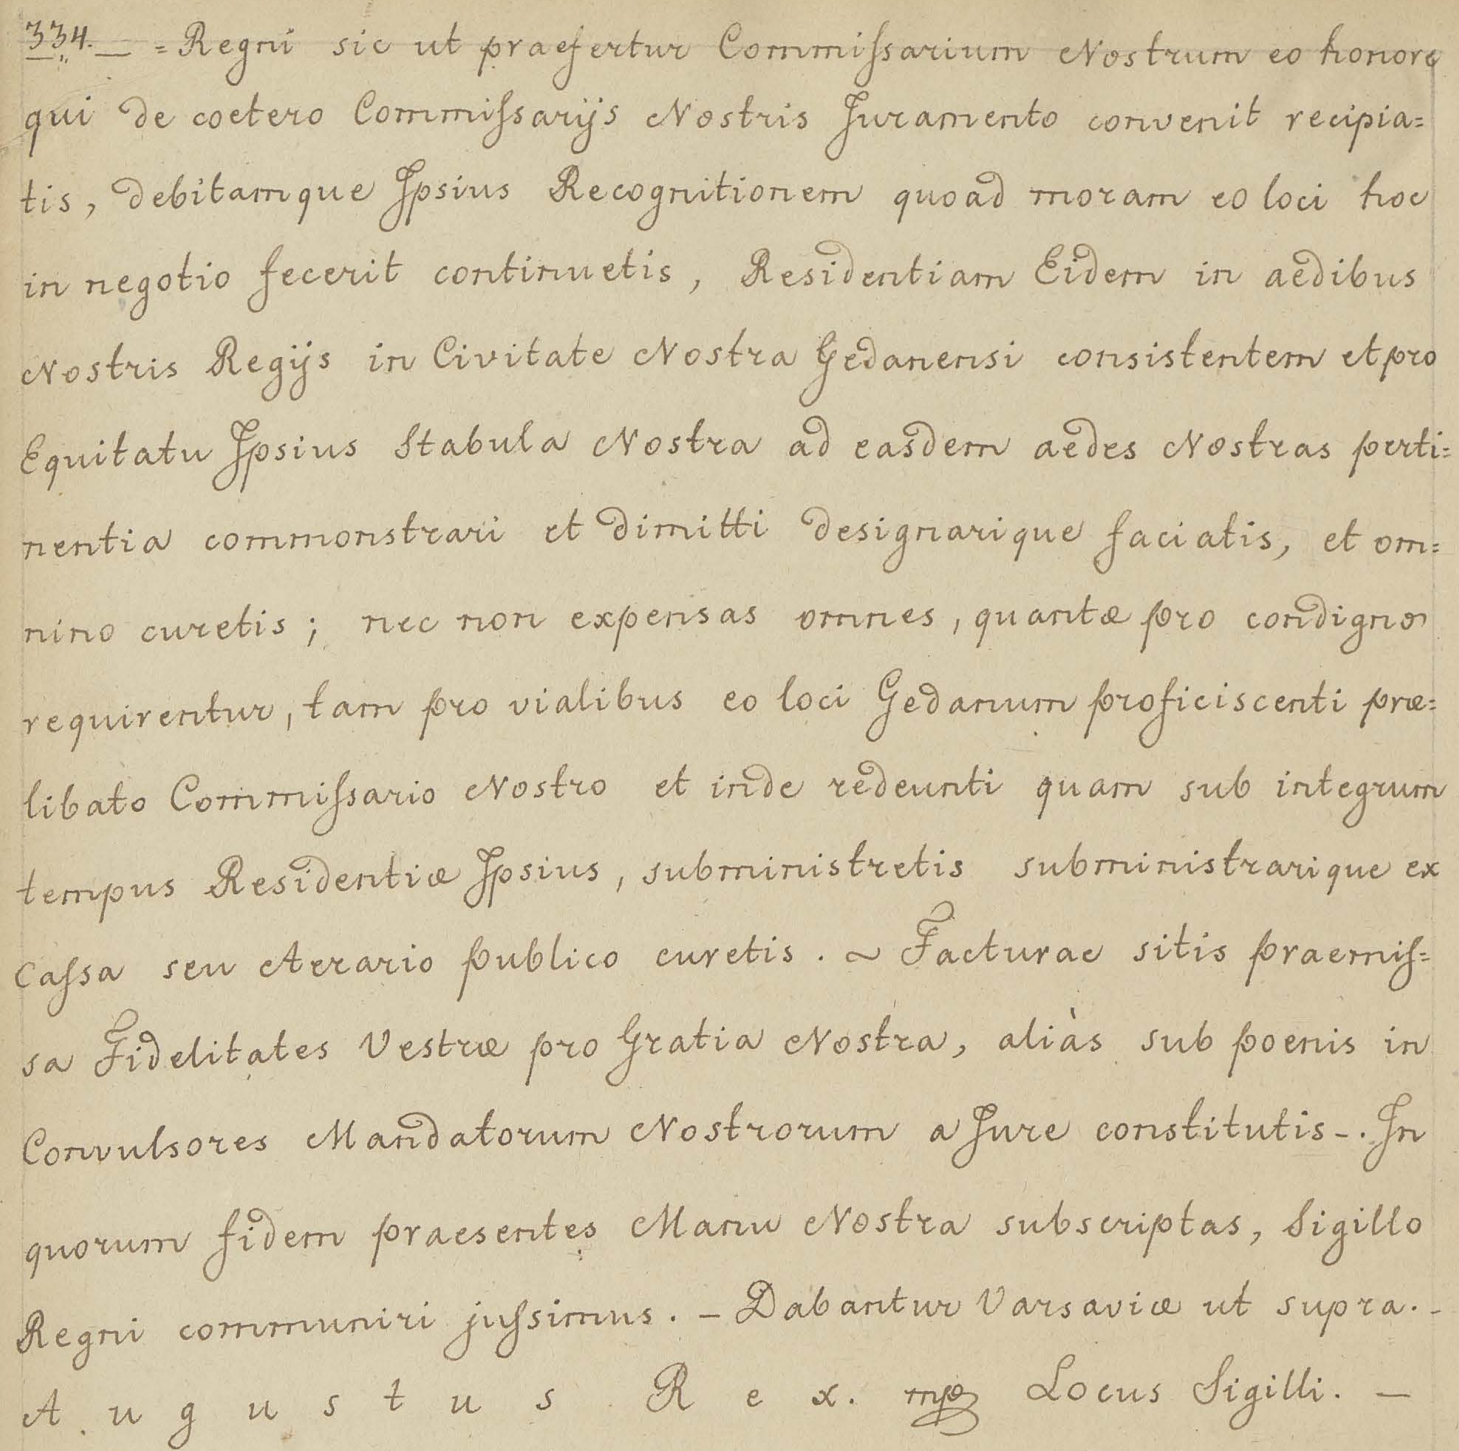 334. — = Regni sic ut praefertur Commiſsarium Nostrum eo honore
qui de coetero Commiſsarijs Nostris Juramento convenit recipia=
tis, debitamque Ipsius Recognitionem quoad moram eo loci hoc
in negotio fecerit continuetis, Residentiam Eidem in aedibus
Nostris Regijs in Civitate Nostra Gedanensi consistentem et pro
Equitatu Ipsius Stabula Nostra ad easdem aedes Nostras perti=
nentia commonstrari et dimitti designarique faciatis, et om=
nino curetis; nec non expensas omnes, quantæ pro condigno
requirentur, tam pro vialibus eo loci Gedanum proficiscenti præ=
libato Commiſsario Nostro et inde redeunti quam sub integrum
tempus Residentiæ Ipsius, subministretis subministrarique ex
Caſsa seu Aerario publico curetis. ~ Facturae sitis praemiſ=
sa Fidelitates Vestræ pro Gratia Nostra, aliàs sub poenis in
Convulsores Mandatorum Nostrorum a Jure constitutis -. In
quorum fidem praesentes Manu Nostra subscriptas, Sigillo
Regni communiri juſsimus. – Dabantur Varsaviæ ut supra. -
Augustus Rex. mp Locus Sigilli. —